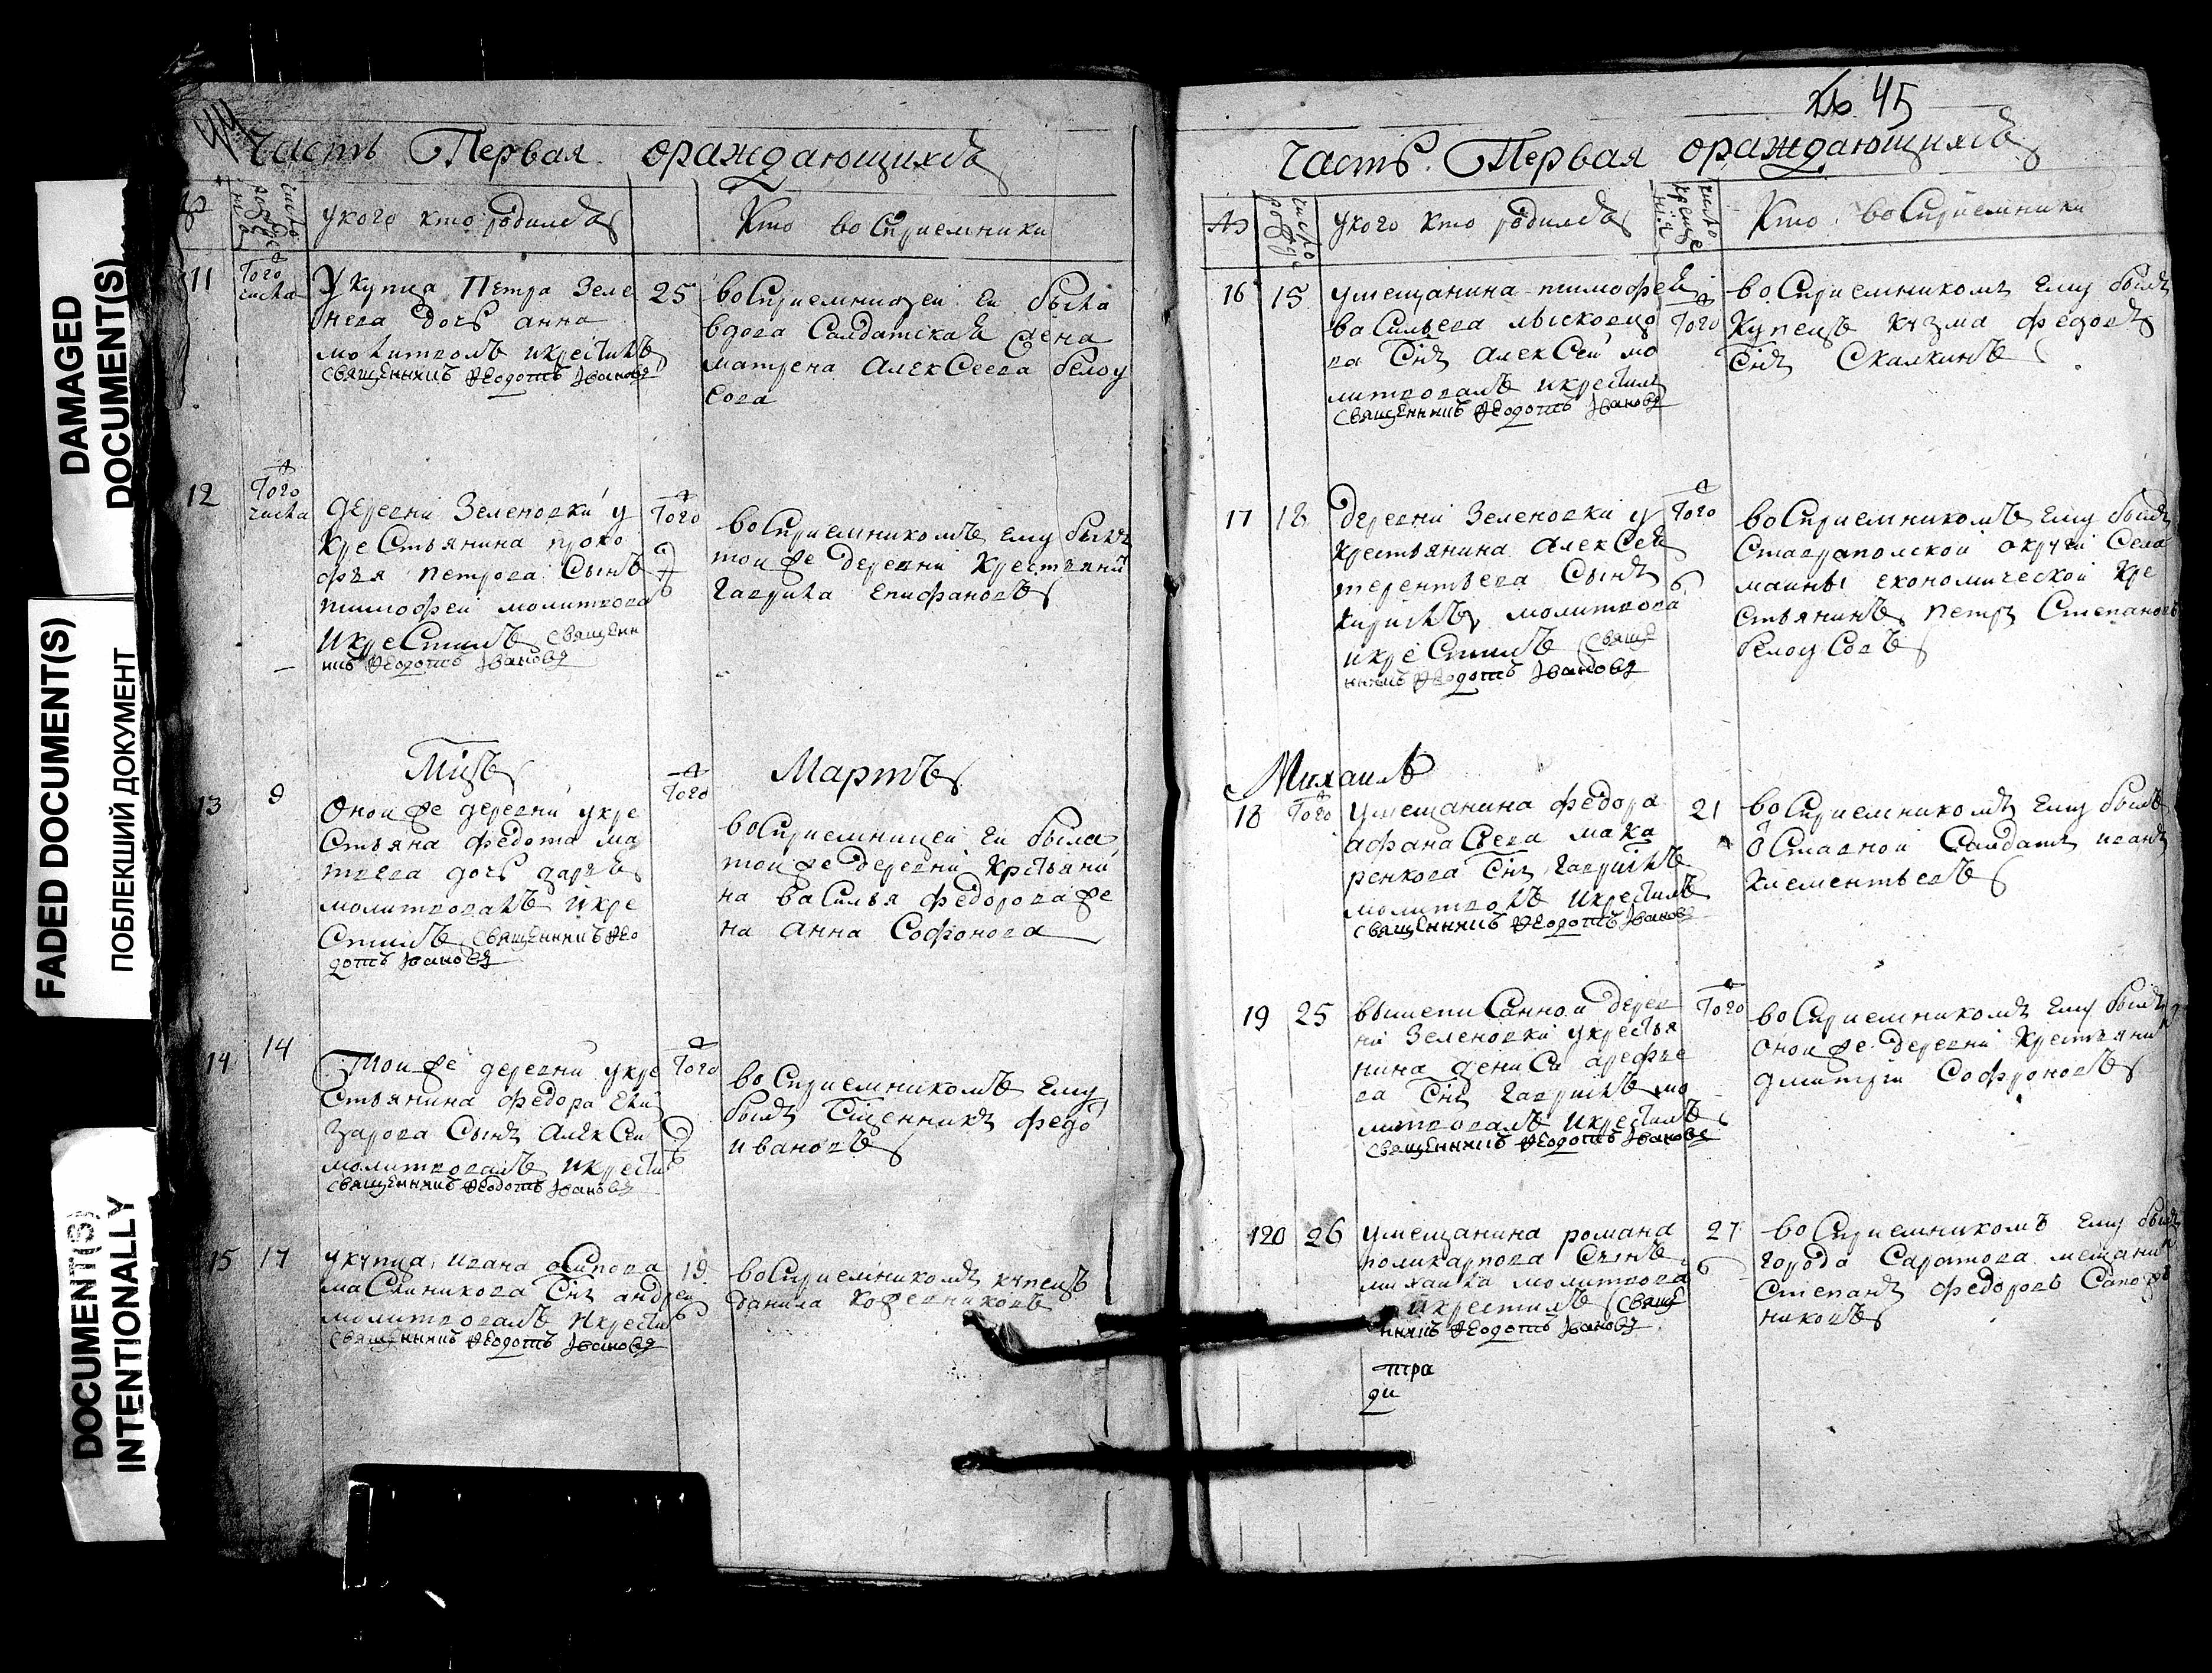 DAMAGED
DOCUMENT(S)
FADED DOCUMENT(S)
ПОБЛЕКШИЙ ДОКУМЕНТ
DOCUMENT(S)
INTENTIONALLY
44
Часть Первая ораждающихсѣ
№
число рожде ния
укого кто родилсѣ
Кто воСприемники
11
Того числа
У купца Петра Зеле
нева дочь анна
молитвовалъ икрестилъ
священникъ Ѳеодотъ Iвановъ
25
воСприемницеи еи была
вдова Салдатская жена
матрена АлекСеева белоу
Сова
12
Того числа
деревни Зеленовки у
КреСтьянина проко
фья петрова Сынъ
тимофеи молитвова
икреСтилъ священ
никъ Ѳеодотъ Iвановъ
Того
воСприемникомъ ему былъ
тои же деревни Крестьянинъ
гаврила Епифановъ
Мцъ Мартъ
13
9
Онои же деревни укре
Стьяна федота ма
твева дочь дарья
молитвовалъ икре
Стилъ священникъ Ѳео
дотъ Iвановъ
Того
воСприемницеи еи была
тои же деревни Крстьяни
на ваСилья федорова же
на анна Софонова
14
14
Тои же деревни укре
Стьянина федора Ели
зарова Сынъ АлекСеи
молитвовалъ икрести
священникъ Ѳеодотъ Iвановъ
Того
воСприемникомъ ему
былъ Сщенникъ федо
ивановъ
15
17
укупца ивана оСипова
маСлиникова Снъ андреи
молитвовалъ икрести
священникъ Ѳеодотъ Iвановъ
19
воСприемникомъ купецъ
данила кожевниковъ
№ 45
Часть Первая ораждающихсѣ
№
число рожде
укого кто родилсѣ
число креще ния
Кто воСприемники
16
15
умещанина тимофея
ваСильева лысковцо
ва Снъ АлекСеи мо
литвовалъ икрестилъ
священникъ Ѳеодотъ Iвановъ
Того
воСприемникомъ Ему былъ
Купецъ Кузма федоръ
Снъ Скалкинъ
17
18
деревни Зеленовки у
крестьянина АлекСея
терентьева Сынъ
кирилъ молитвова
икреСтилъ свяще
нникъ Ѳеодотъ Iвановъ
Того
воСприемникомъ Ему былъ
Ставрапольской округи Села
маины економической Кре
Стьянинъ петръ Степановъ
белоуСовъ
Михаилъ
18
Того
умещанина федора
афанаСьева мака
ренкова Снъ гаврилъ
молитвовлъ икрестилъ
священникъ Ѳеодотъ Iвановъ
21
воСприемникомъ Ему былъ
оСтавнои Салдатъ иванъ
клементьевъ
19
25
вышепиСаннои дерев
ни Зеленовки укрестья
нина дениСа арефье
ва Снъ гаврилъ мо
литвовалъ икрестилъ
священникъ Ѳеодотъ Iвановъ
Того
воСприемникомъ Ему былъ
онои же деревни Крестьянинъ
дмитри Софроновъ
120
26
умещанина романа
поликарпова Сынъ
михаила молитвова
икрестилъ свяще
нникъ Ѳеодотъ Iвановъ
27
воСприемникомъ Ему былъ
города Саратова мещанинъ
Степанъ федоровъ Сапож
никовъ
тра
ди